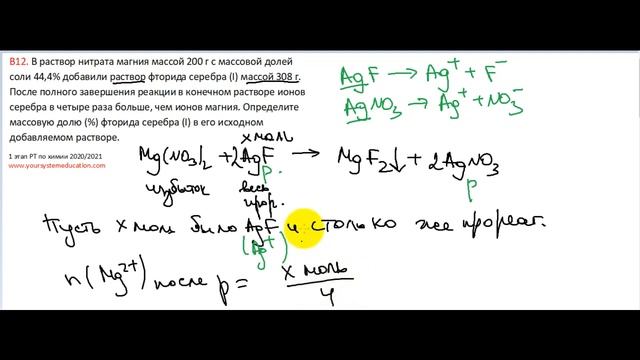 В12. В раствор нитрата магния массой 200 г с массовой долей
соли 44,4% добавили раствор фторида серебра (I) массой 308 г.
После полного завершения реакции в конечном растворе ионов
серебра в четыре раза больше, чем ионов магния. Определите
массовую долю (%) фторида серебра (I) в его исходном
добавляемом растворе.
1 этап РТ по химии 2020/2021
www.yoursystemeducation.com
AgF → Ag⁺ + F⁻
AgNO₃ → Ag⁺ + NO₃⁻
x моль
Mg(NO₃)₂ + 2AgF → MgF₂↓ + 2AgNO₃
р. р
избыток весь
прор.
Пусть x моль было AgF и столько же прореаг.
(Ag⁺)
n(Mg²⁺) после р = x моль / 4